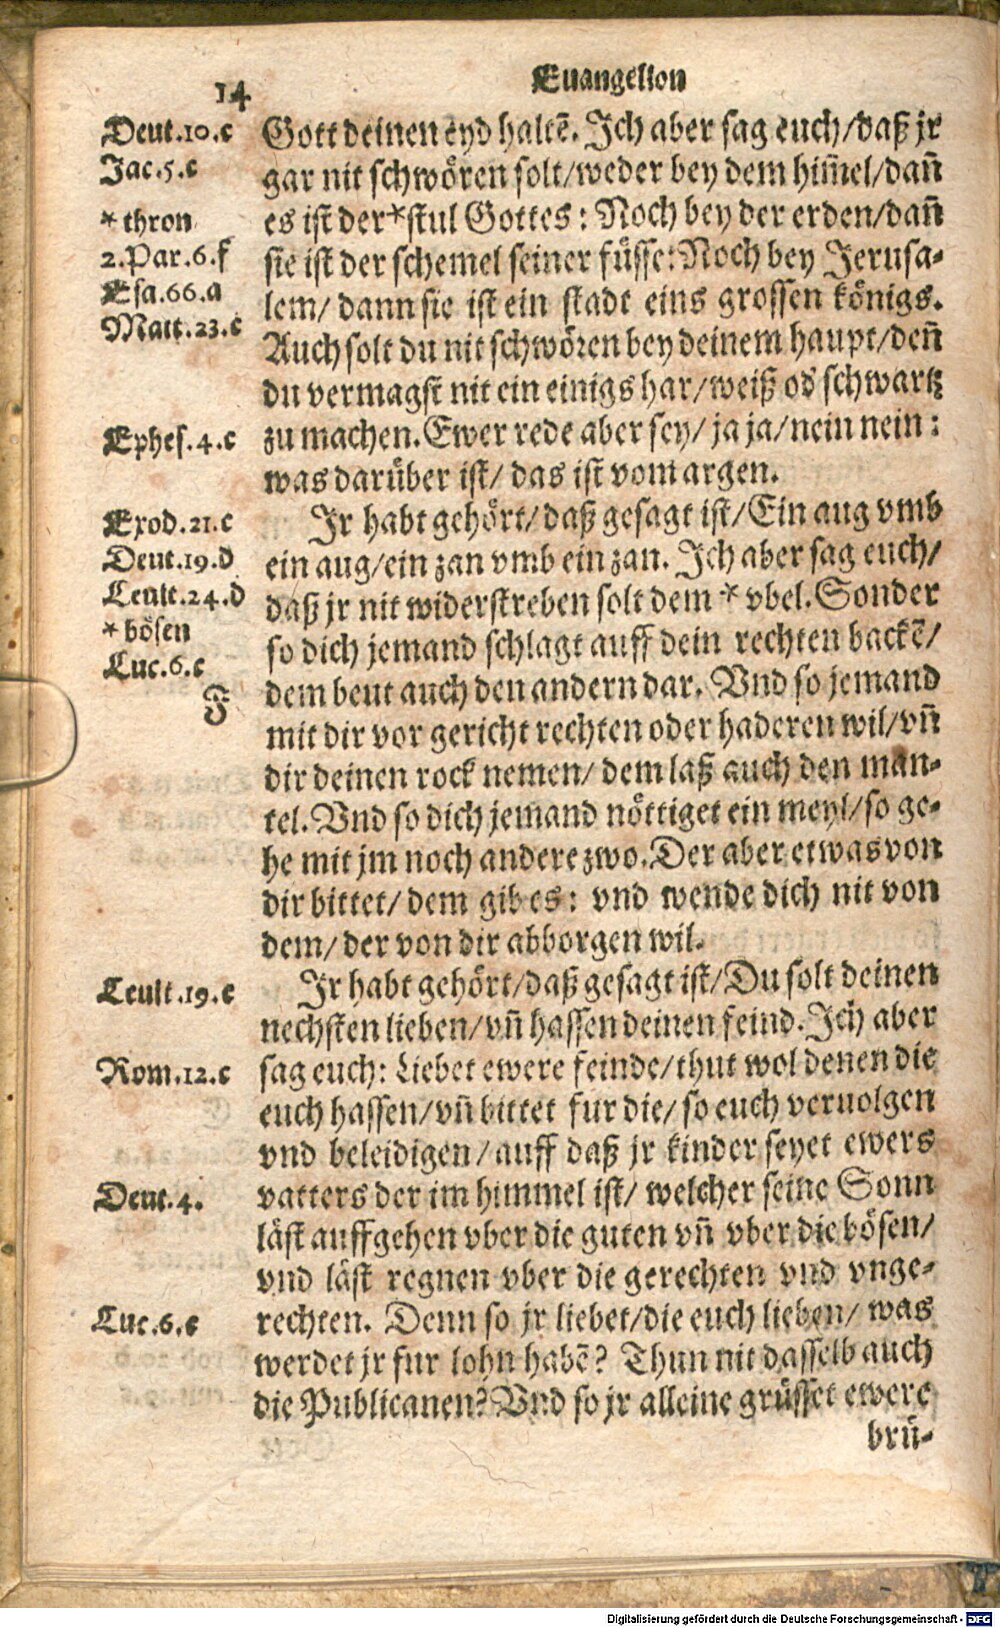 14
Euangelion
Deut.10.c
Jac.5.c
* thron
2.Par.6.f
Esa.66.a
Matt.23.c
Ephes.4.c
Exod.21.c
Deut.19.d
Leuit.24.d
* bösen
Luc.6.c
F
Leuit.19.c
Rom.12.c
Deut.4.
Luc.6.e
Gott deinen eyd haltē. Ich aber sag euch/daß jr
gar nit schwören solt/weder bey dem him̄el/dañ
es ist der*stul Gottes: Noch bey der erden/dañ
sie ist der schemel seiner füsse: Noch bey Jerusa-
lem/ dann sie ist ein stadt eins grossen königs.
Auch solt du nit schwören bey deinem haupt/deñ
du vermagst nit ein einigs har/weiß od schwartz
zu machen. Ewer rede aber sey/ ja ja/nein nein:
was darüber ist/ das ist vom argen.
Jr habt gehört/daß gesagt ist/Ein aug vmb
ein aug/ein zan vmb ein zan. Ich aber sag euch/
daß jr nit widerstreben solt dem * vbel. Sonder
so dich jemand schlagt auff dein rechten backē/
dem beut auch den andern dar. Vnd so jemand
mit dir vor gericht rechten oder haderen wil/vñ
dir deinen rock nemen/ dem laß auch den man-
tel. Vnd so dich jemand nöttiget ein meyl/so ge-
he mit jm noch andere zwo. Der aber etwas von
dir bittet/ dem gib es: vnd wende dich nit von
dem/ der von dir abborgen wil.
Jr habt gehört/daß gesagt ist/Du solt deinen
nechsten lieben/vñ hassen deinen feind. Ich aber
sag euch: Liebet ewere feinde/thut wol denen die
euch hassen/vñ bittet fur die/ so euch veruolgen
vnd beleidigen/auff daß jr kinder seyet ewers
vatters der im himmel ist/ welcher seine Sonn
läst auffgehen vber die guten vñ vber die bösen/
vnd läst regnen vber die gerechten vnd vnge-
rechten. Denn so jr liebet/die euch lieben/ was
werdet jr fur lohn habē? Thun nit dasselb auch
die Publicanen? Vnd so jr alleine grüsset ewere
brü-
Digitalisierung gefördert durch die Deutsche Forschungsgemeinschaft - DFG